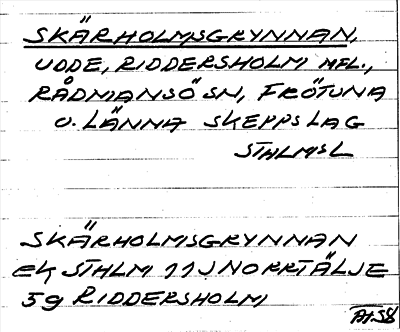 SKÄRHOLMSGRYNNAN,
UDDE, RIDDERSHOLM MFL.,
RÅDMANSÖ SN, FRÖTUNA
O. LÄNNA SKEPPSLAG
STHLMSL
SKÄRHOLMSGRYNNAN
EK STHLM 11J NORRTÄLJE
59 RIDDERSHOLM